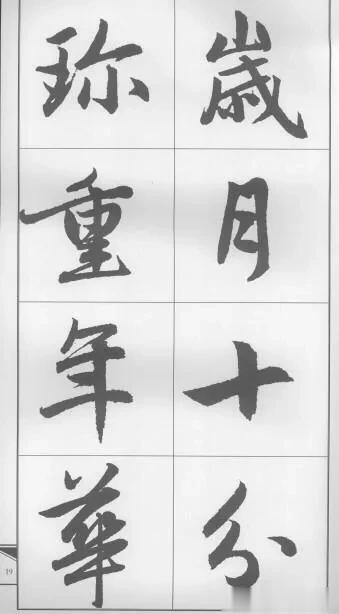 歲月十分
珎重年華
19